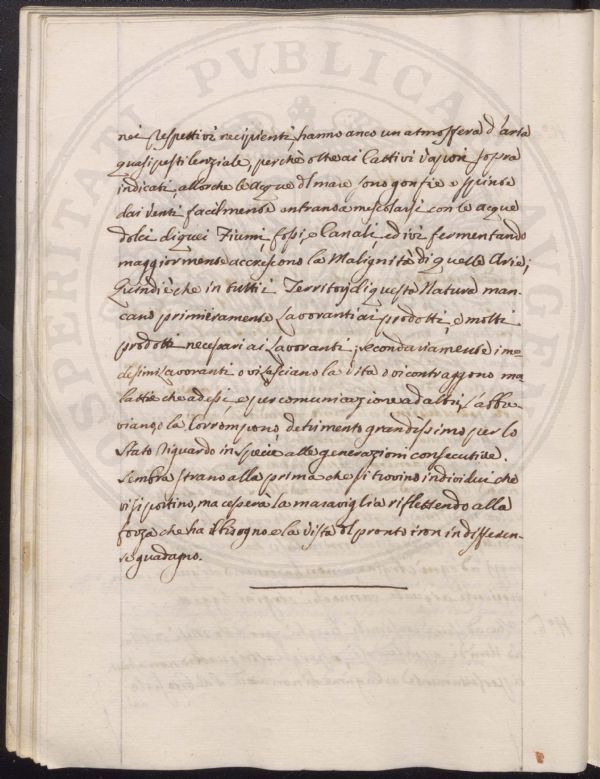 nei respettivi recipienti, hanno anco un atmosfera d'aria
quasi pestilenziale, perchè oltre ai Cattivi vapori sopra
indicati, allorche le acque del mare sono gonfie e spinte
dai venti facilmente entrano a mescolarsi con le acque
dolci di quei Fiumi fossi, e Canali, ed ivi fermentando
maggiormente accrescono la Malignità di quelle Arie;
Quindi è che in tutti i Territorj di questa Natura man-
cano primieramente Lavoranti ai prodotti, e molti
prodotti necessari ai Lavoranti; secondariamente i me-
desimi Lavoranti o vi lasciano la vita o vi contraggono ma-
lattie che ad essi, e per comunicazione ad altri, l'abbre-
viano, o la Corrompono detrimento grandissimo per lo
Stato riguardo in specie alle generazioni consecutive.
Sembra strano alla prima che si trovino individui che
vi si portino, ma cesserà la maraviglia riflettendo alla
forza che ha il bisogno e la vista del pronto e non indifferen-
te guadagno.
PVBLICA